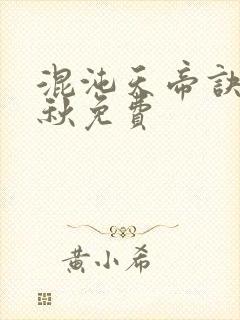 混沌天帝訣
秋免費
黃小希